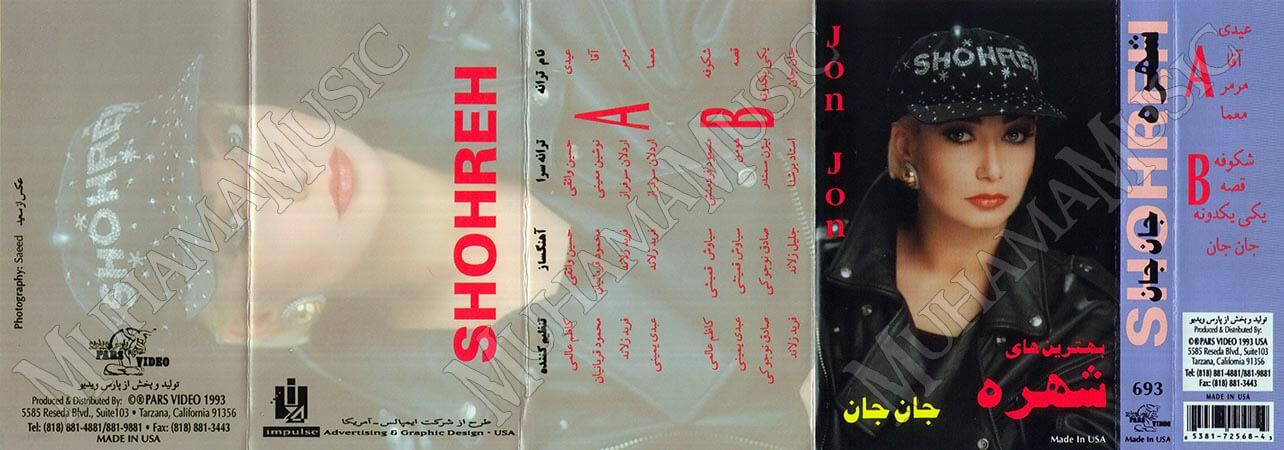 SHOHREH
عکس از سعید
Photography: Saeed
پارس ویدیو
PARS VIDEO
تولید و پخش از پارس ویدیو
Produced & Distributed By: ©®PARS VIDEO 1993
5585 Reseda Blvd., Suite103 • Tarzana, California 91356
Tel: (818) 881-4881/881-9881 • Fax: (818) 881-3443
MADE IN USA
SHOHREH
impulse
طرح از شرکت ایمپالس - آمریکا
Advertising & Graphic Design • USA
نام ترانه ترانه سرا آهنگساز تنظیم کننده
A
عیدی حسین واثقی حسین واثقی کاظم عالمی
آقا نوشین معینی محمود قربانیان محمود قربانیان
مرمر اردلان سرفراز فرید زلاند فرید زلاند
معما اردلان سرفراز فرید زلاند عبدی یمینی
B
شکوفه مسعود سیاوش قمیشی کاظم عالمی
قصه هومن سیاوش قمیشی عبدی یمینی
یکی یکدونه بیژن سمندر صادق نوجوکی صادق نوجوکی
جان جان استاد جلیل زلاند فرید زلاند
Jon Jon
SHOHREH
بهترین های
شهره
جان جان
Made In USA
SHOHREH
شهره
جان جان
693
PARS VIDEO
Made In USA
A
عیدی
آقا
مرمر
معما
B
شکوفه
قصه
یکی یکدونه
جان جان
تولید و پخش از پارس ویدیو
Produced & Distributed By:
©®PARS VIDEO 1993 USA
5585 Reseda Blvd., Suite103
Tarzana, California 91356
Tel: (818) 881-4881/881-9881
Fax: (818) 881-3443
MADE IN USA
0 5381-72568-4
MUHAMAMUSIC
MUHAMAMUSIC
MUHAMAMUSIC
MUHAMAMUSIC